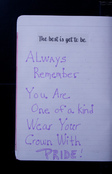 The best is yet to be.
Always
Remember
You Are
One of a kind
Wear Your
Crown With
PRIDE!